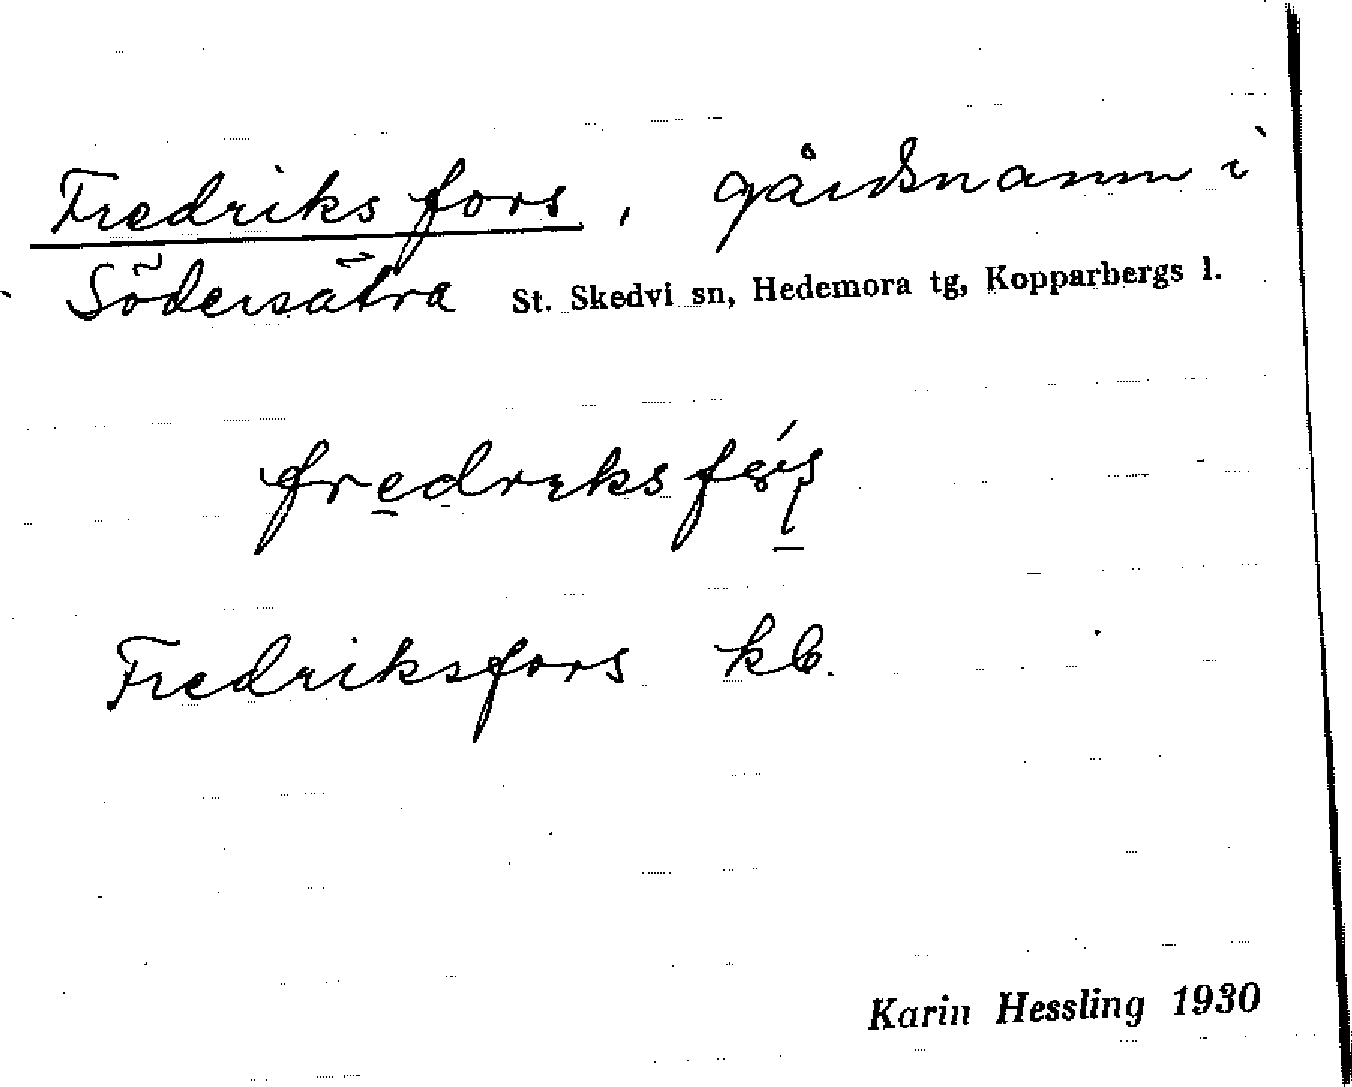 Fredriksfors, gårdsnamn i
Södersätra St. Skedvi sn, Hedemora tg, Kopparbergs l.
Fredriksfors kb.
Karin Hessling 1930